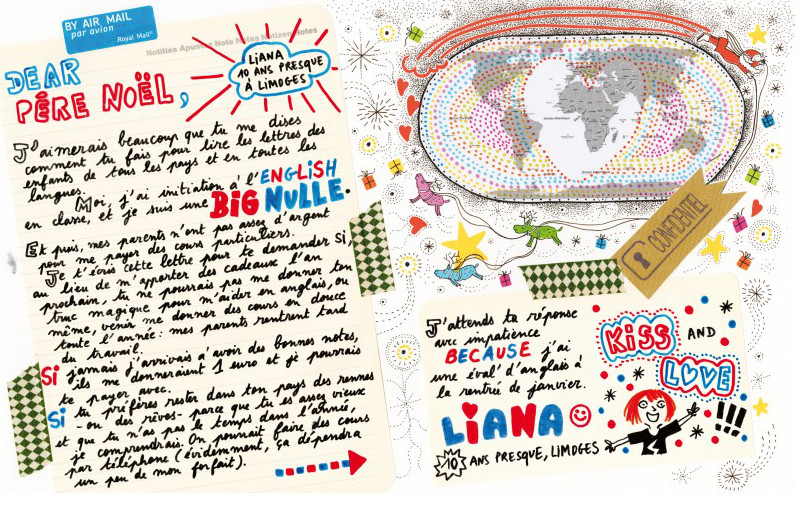 BY AIR MAIL
par avion
Royal Mail®
Notities Apuntes Note Notes Notizen Notes
DEAR
PÈRE NOËL,
LiANA
10 ANS PRESQUE
À LIMOGES
J'aimerais beaucoup que tu me dises
comment tu fais pour lire les lettres des
enfants de tous les pays et en toutes les
langues.
Moi, j'ai initiation à l'ENGLiSH
en classe, et je suis une BIG NULLE.
Et puis, mes parents n'ont pas assez d'argent
pour me payer des cours particuliers.
Je t'écris cette lettre pour te demander si,
au lieu de m'apporter des cadeaux l'an
prochain, tu ne pourrais pas me donner ton
truc magique pour m'aider en anglais, ou
même, venir me donner des cours en douce
toute l'année: mes parents rentrent tard
du travail.
Si jamais j'arrivais à avoir des bonnes notes,
ils me donneraient 1 euro et je pourrais
te payer avec.
Si tu préfères rester dans ton pays des rennes
-ou des rêves- parce que tu es assez vieux
et que tu n'as pas le temps dans l'année,
je comprendrais. On pourrait faire des cours
par téléphone (évidemment, ça dépendra
un peu de mon forfait).
CONFIDENTIEL
J'attends ta réponse
avec impatience
BECAUSE j'ai
une éval' d'anglais à
la rentrée de janvier.
KiSS AND
LOVE
!!!
LiANA
10 ANS PRESQUE, LIMOGES